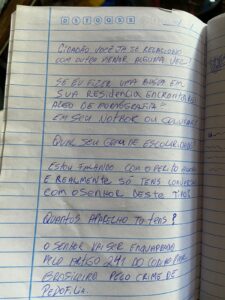 CIDADÃO VOCÊ JÁ SE RELACIONO
COM OUTRO MENOR ALGUMA VEZ
SE EU FIZER UMA BUSCA EM
SUA RESIDENCIA ENCRONTO
DE PORNOGRAFIA
EM SEU NOTBOK OU
QUAL SEU GRAU DE ESCOLARIDADE
ESTOU FALANDO COM O PERITO
E REALMENTE SÓ TENS
COM O SENHOR DESTE TIPO
QUANTOS APARELHO TU TENS?
O SENHOR VAI SER ENQUADRADO
PELO ARTIGO 241 DO
BRASILEIRO PELO CRIME DE
PEDOFILIA.